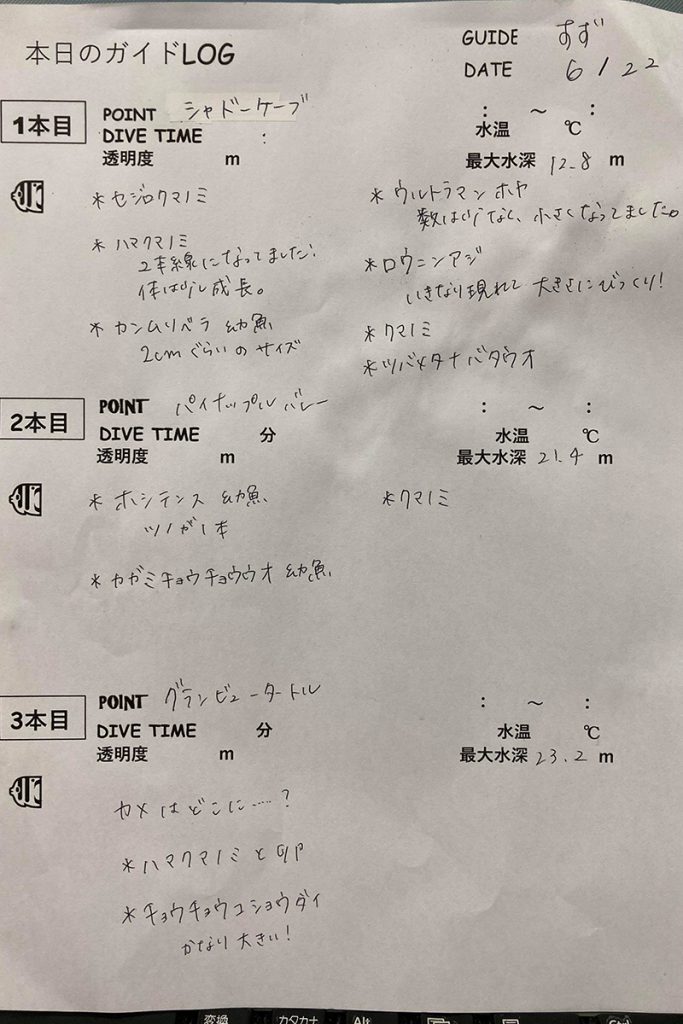 本日のガイドLOG
GUIDE すず
DATE 6/22
1本目
POINT シャドーケーブ
DIVE TIME :
: ~ :
水温 ℃
透明度 m
最大水深 12.8 m
*セジロクマノミ
*ハマクマノミ
2本線になってました!
体は少し成長。
*カンムリベラ 幼魚
2cmぐらいのサイズ
*ウルトラマンホヤ
数は少なく、小さくなってました。
*ロウニンアジ
いきなり現れて大きさにびっくり!
*クマノミ
*ツバメタナバタウオ
2本目
POINT パイナップルバレー
DIVE TIME 分
: ~ :
水温 ℃
透明度 m
最大水深 21.4 m
*ホシテンス 幼魚
ツノが1本
*カガミチョウチョウウオ 幼魚
*クマノミ
3本目
POINT グランビュータートル
DIVE TIME 分
: ~ :
水温 ℃
透明度 m
最大水深 23.2 m
カメはどこに……?
*ハマクマノミと卵
*チョウチョウコショウダイ
かなり大きい!
変換
カタカナ
Alt
Ctrl